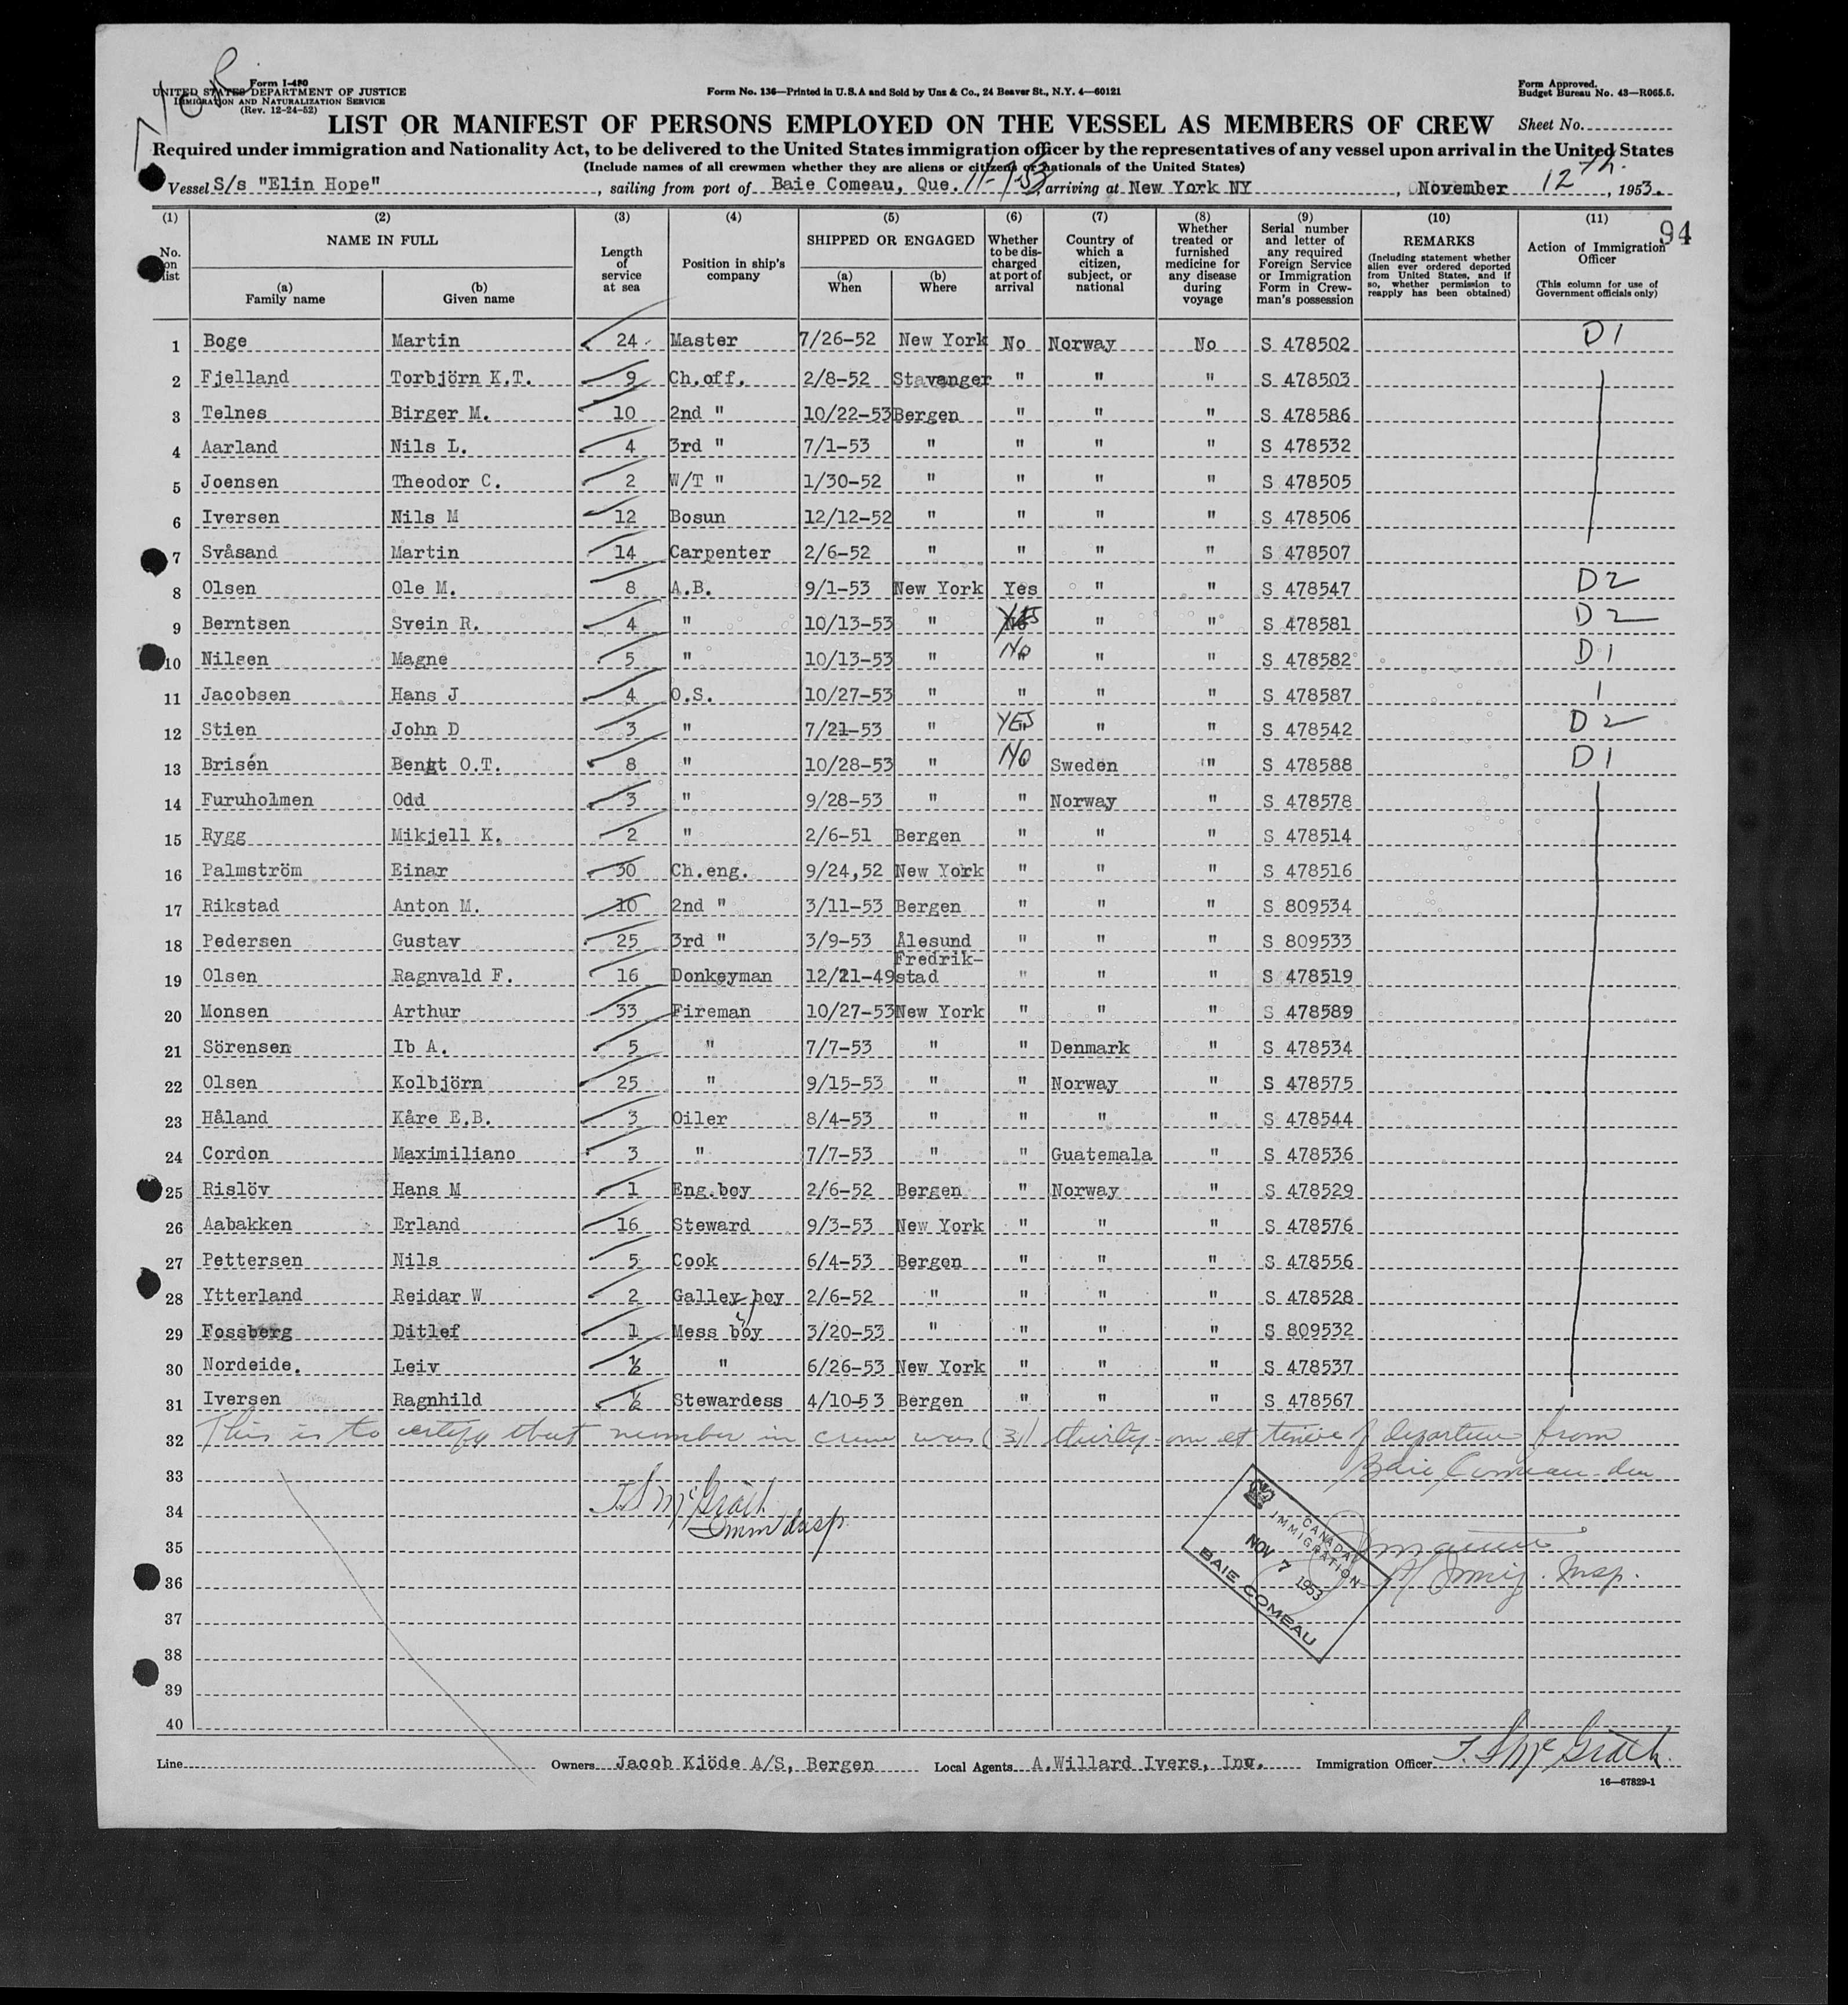 York
Form I-480
UNITED STATES DEPARTMENT OF JUSTICE
IMMIGRATION AND NATURALIZATION SERVICE
(Rev. 12-24-52)
Form No. 136—Printed in U.S.A and Sold by Unz & Co., 24 Beaver St., N.Y. 4—60121
Form Approved.
Budget Bureau No. 43—R065.5.
LIST OR MANIFEST OF PERSONS EMPLOYED ON THE VESSEL AS MEMBERS OF CREW Sheet No.
Required under immigration and Nationality Act, to be delivered to the United States immigration officer by the representatives of any vessel upon arrival in the United States
(Include names of all crewmen whether they are aliens or citizens or nationals of the United States)
Vessel S/s "Elin Hope", sailing from port of Baie Comeau, Que. 11-7-53, arriving at New York NY, November 12th, 1953.
94
(1) No. on list
(2) NAME IN FULL (a) Family name (b) Given name
(3) Length of service at sea
(4) Position in ship's company
(5) SHIPPED OR ENGAGED (a) When (b) Where
(6) Whether to be discharged at port of arrival
(7) Country of which a citizen, subject, or national
(8) Whether treated or furnished medicine for any disease during voyage
(9) Serial number and letter of any required Foreign Service or Immigration Form in Crewman's possession
(10) REMARKS (Including statement whether alien ever ordered deported from United States, and if so, whether permission to reapply has been obtained)
(11) Action of Immigration Officer (This column for use of Government officials only)
1 Boge Martin 24 Master 7/26-52 New York No Norway No S 478502 D1
2 Fjelland Torbjörn K.T. 9 Ch.off. 2/8-52 Stavanger " " " S 478503
3 Telnes Birger M. 10 2nd " 10/22-53 Bergen " " " S 478586
4 Aarland Nils L. 4 3rd " 7/1-53 " " " " S 478532
5 Joensen Theodor C. 2 W/T " 1/30-52 " " " " S 478505
6 Iversen Nils M 12 Bosun 12/12-52 " " " " S 478506
7 Svåsand Martin 14 Carpenter 2/6-52 " " " " S 478507
8 Olsen Ole M. 8 A.B. 9/1-53 New York Yes " " S 478547 D2
9 Berntsen Svein R. 4 " 10/13-53 " YES " " S 478581 D2
10 Nilsen Magne 5 " 10/13-53 " No " " S 478582 D1
11 Jacobsen Hans J 4 O.S. 10/27-53 " " " " S 478587 1
12 Stien John D 3 " 7/21-53 " YES " " S 478542 D2
13 Brisén Bengt O.T. 8 " 10/28-53 " No Sweden " S 478588 D1
14 Furuholmen Odd 3 " 9/28-53 " " Norway " S 478578
15 Rygg Mikjell K. 2 " 2/6-51 Bergen " " " S 478514
16 Palmström Einar 30 Ch.eng. 9/24,52 New York " " " S 478516
17 Rikstad Anton M. 10 2nd " 3/11-53 Bergen " " " S 809534
18 Pedersen Gustav 25 3rd " 3/9-53 Ålesund " " " S 809533
19 Olsen Ragnvald F. 16 Donkeyman 12/21-49 Fredrik-stad " " " S 478519
20 Monsen Arthur 33 Fireman 10/27-53 New York " " " S 478589
21 Sörensen Ib A. 5 " 7/7-53 " " Denmark " S 478534
22 Olsen Kolbjörn 25 " 9/15-53 " " Norway " S 478575
23 Håland Kåre E.B. 3 Oiler 8/4-53 " " " " S 478544
24 Cordon Maximiliano 3 " 7/7-53 " " Guatemala " S 478536
25 Rislöv Hans M 1 Eng.boy 2/6-52 Bergen " Norway " S 478529
26 Aabakken Erland 16 Steward 9/3-53 New York " " " S 478576
27 Pettersen Nils 5 Cook 6/4-53 Bergen " " " S 478556
28 Ytterland Reidar W 2 Galley boy 2/6-52 " " " " S 478528
29 Fossberg Ditlef 1 Mess boy 3/20-53 " " " " S 809532
30 Nordeide. Leiv ½ " 6/26-53 New York " " " S 478537
31 Iversen Ragnhild ½ Stewardess 4/10-53 Bergen " " " S 478567
32 This is to certify that number in crew was (31) thirty-one at time of departure from
33 Baie Comeau
34 T. S. McGrath
Immn Insp.
35
36 Immig. Insp.
37
38
39
40
CANADA
IMMIGRATION
NOV 7 1953
BAIE COMEAU
Line Owners Jacob Kjöde A/S, Bergen Local Agents A.Willard Ivers, Inc. Immigration Officer T. S. McGrath
16—67829-1